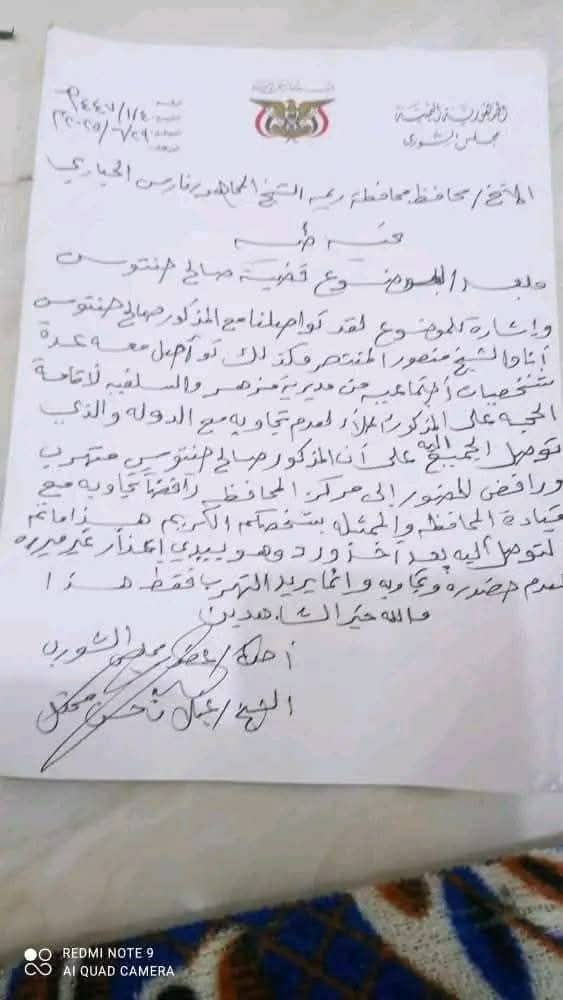 الجمهورية اليمنية
مجلس الشورى
١٤٤٧/١/٤
٢٠٢٥/٦/٢٩م
الأخ/ محافظ محافظة ريمه الشيخ المجاهد فارس الحباري
تحيه طيبه
وبعد/ الموضوع قضية صالح حنتوس
وإشارة للموضوع لقد تواصلنا مع المذكور صالح حنتوس
أنا والشيخ منصور المنتصر وكذلك تواصل معه عدة
شخصيات أجتماعيه من مديرية مزهر والسلفيه لأقامة
الحجه على المذكور أعلاه لعدم تجاوبه مع الدوله والذي
توصل الجميع اليه على أن المذكور صالح حنتوس متهرب
ورافض الحضور إلى مركز المحافظه رافضاً تجاوبه مع
قيادة المحافظه والممثله بشخصكم الكريم هذا ماتم
التوصل أليه بعد آخذ ورد وهو يبدي إعذار غير مبرره
لعدم حضوره وتجاوبه وانما يريد التهرب فقط هذا
والله خير الشاهدين
أخوكم/ عضو مجلس الشورى
الشيخ/ محسن
REDMI NOTE 9
AI QUAD CAMERA